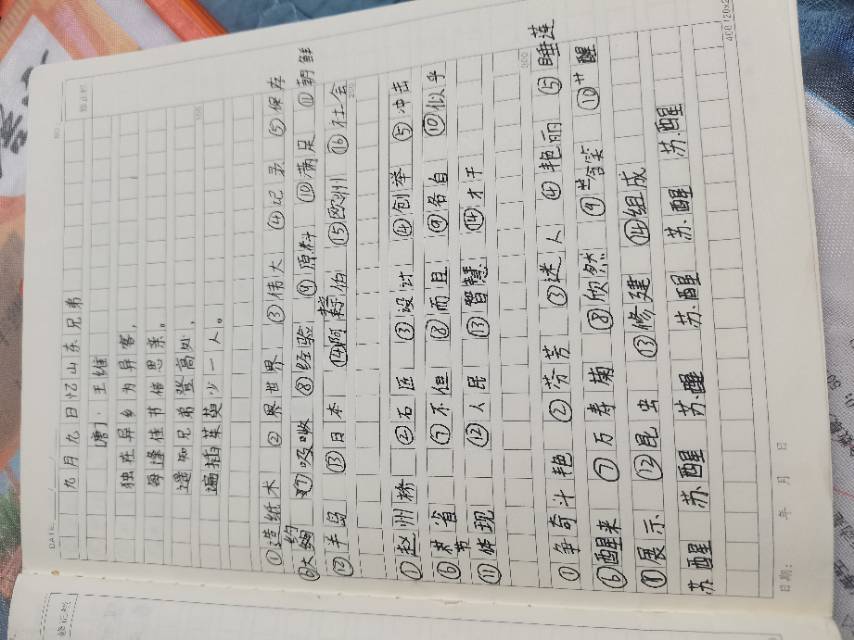 九月九日忆山东兄弟
[唐]·王维
独在异乡为异客，
每逢佳节倍思亲。
遥知兄弟登高处，
遍插茱萸少一人。
①造纸术 ②界世界 ③伟大 ④记录 ⑤保存
⑥大约 ⑦吸收 ⑧经验 ⑨原料 ⑩满足 ⑪朝鲜
⑫半岛 ⑬日本 ⑭阿拉伯 ⑮欧洲 ⑯社会
①赵州桥 ②石匠 ③设计 ④创举 ⑤冲击
⑥节省 ⑦不但 ⑧而且 ⑨各自 ⑩似乎
⑪体现 ⑫人民 ⑬智慧 ⑭才干
①争奇斗艳 ②芬芳 ③迷人 ④艳丽 ⑤睡莲
⑥醒来 ⑦万寿菊 ⑧欣然 ⑨含笑 ⑩醒
⑪展示 ⑫昆虫 ⑬修建 ⑭组成
苏醒 苏醒 苏醒 苏醒 苏醒 苏醒
日期： 年 月 日